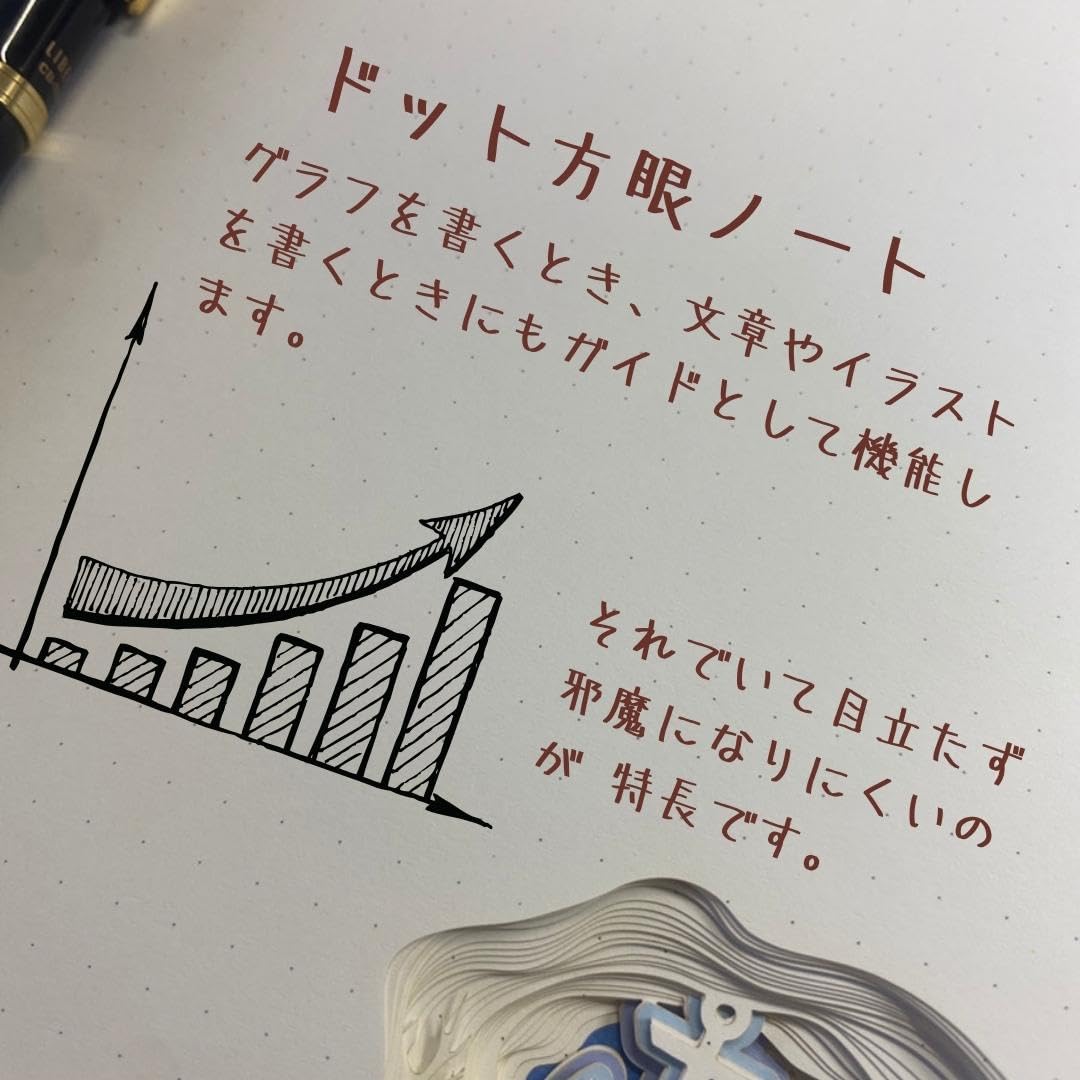 ドット方眼ノート
グラフを書くとき、文章やイラスト
を書くときにもガイドとして機能し
ます。
それでいて目立たず
邪魔になりにくいの
が 特長です。